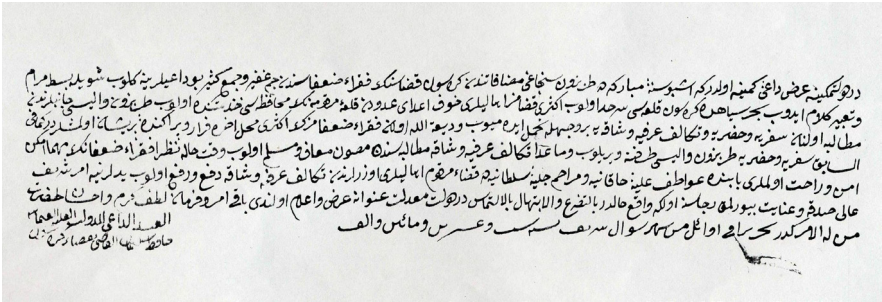 در دولتمكينه عرض داعئ كمينه اولدر كه اشبو سنۀ مباركه ده طربزون سنجاغى مضافاتندن كره سون قضاسنك فقراء ضعفاسندن جم غفير وجمع كثير بو داعيلرينه كلوب شويله بسط مرام
وتعبير كلام ايدوب بحر سياهده كره سون قلعه سى سرحد اولوب اكثرى قضامز اهاليلرى خوف اعداى عدودن قلعۀ مرقومه نك محافظه سى خدمتنده اولوب طربزون واليسى جانبلرندن
مطالبه اولنان سفريه وحضريه وتكاليف عرفيه وشاقه يه بر وجهله تحمل ايده ميوب وديعة الله اولان فقراء ضعفامزك اكثرى محل اخره فرار وپراكنده وپريشان اولمشلردر فى
السابق سفريه وحضريه طربزون واليسى طرفنه ويريلوب وماعدا تكاليف عرفيه وشاقه مطالبه سندن مصون معاف ومسلم اولوب وقت حاله نظرا فقراء ضعفانك مهما امكن
امن وراحت اولملرى بابنده عواطف عليۀ خاقانيه ومراحم جليۀ سلطانيه دن قضاء مرقوم اهاليلرى اوزرلرندن تكاليف عرفيه وشاقه دفع ورفع اولوب يدلرينه امر شريف
عالى صدقه وعنايت بيورلمق رجاسنه اولكه واقع حالدر بالتضرع والابتهال بالالتماس در دولت معدلت عنوانه عرض واعلام اولندى باقى امر وفرمان لطف كرم واحسان حضرت
من له الامر كدر تحريرا فى اوائل من شهر شوال شريف لسنه ست وعشرين ومائتين والف
العبد الداعى للدولة العلية العثمانيه
القاضى بقضاء كره سون